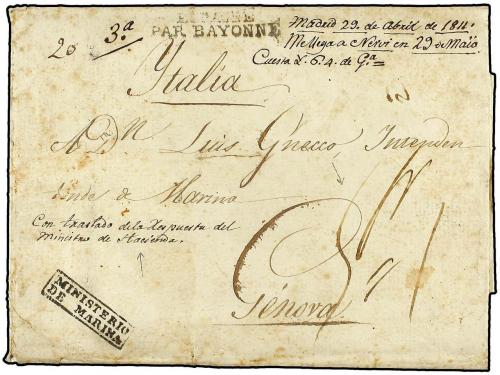 ESPAGNE
PAR BAYONNE
20 3.ª
Madrid 29. de Abril de 1811.
Me llega a Nervi en 29 de Maÿo
Cuesta L. 6.4. de G.ª
Italia
A Dn Luis Gnecco Intenden
de Marina
Con traslado de la Respuesta del
Ministro de Hacienda.
MINISTERIO
DE MARINA
Génova